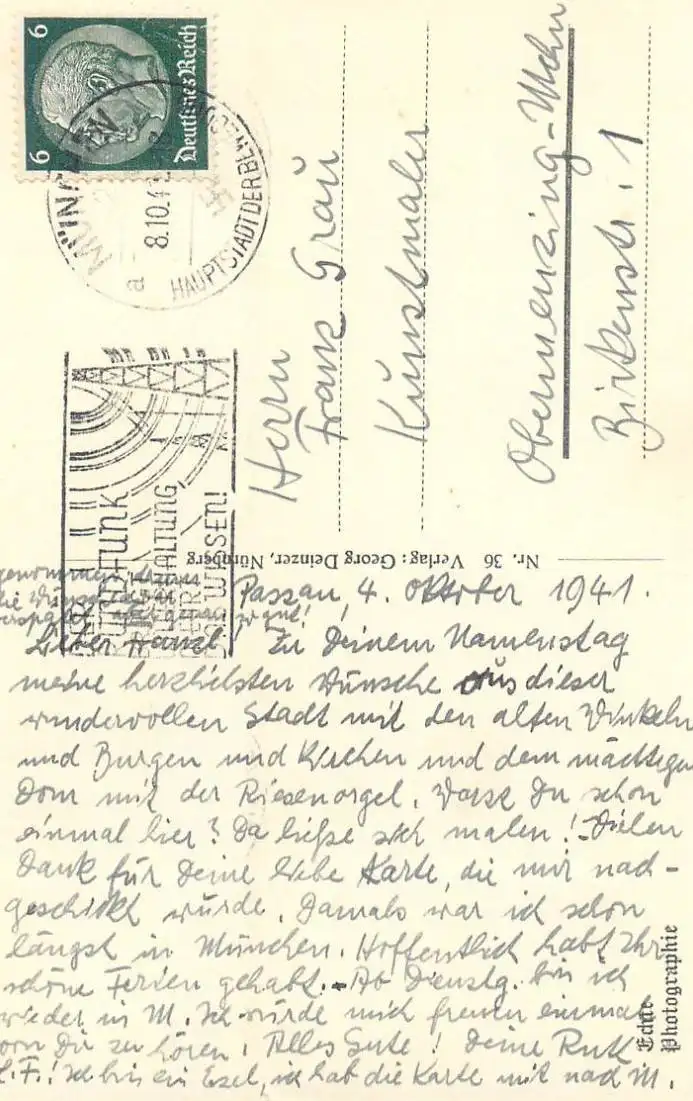 6 6
Deutsches Reich
MÜNCHEN
a 8.10.41
HAUPTSTADT DER BEWEGUNG
RUNDFUNK
UNTERHALTUNG
WISSEN!
Herrn
Franz Grau
Kunstmaler
Obermenzing-Mchn
Birkenstr. 1
Nr. 36 Verlag: Georg Deinzer, Nürnberg
Echte Photographie
Passau, 4. Oktober 1941.
Lieber Franzl, Zu Deinem Namenstag
meine herzlichsten Wünsche aus dieser
wundervollen Stadt mit den alten Winkeln
und Burgen und Kirchen und dem mächtigen
Dom mit der Riesenorgel. Warst Du schon
einmal hier? Da ließe sich malen! Vielen
Dank für Deine liebe Karte, die mir nach-
geschickt wurde. Damals war ich schon
längst in München. Hoffentlich habt Ihr
schöne Ferien gehabt. – Ab Dienstg. bin ich
wieder in M. Ich würde mich freuen einmal
von Dir zu hören! Alles Gute! Deine Ruth
L. F.! Ich bin ein Esel, ich hab die Karte mit nach M.
genommen
die Wünsche
verspätet